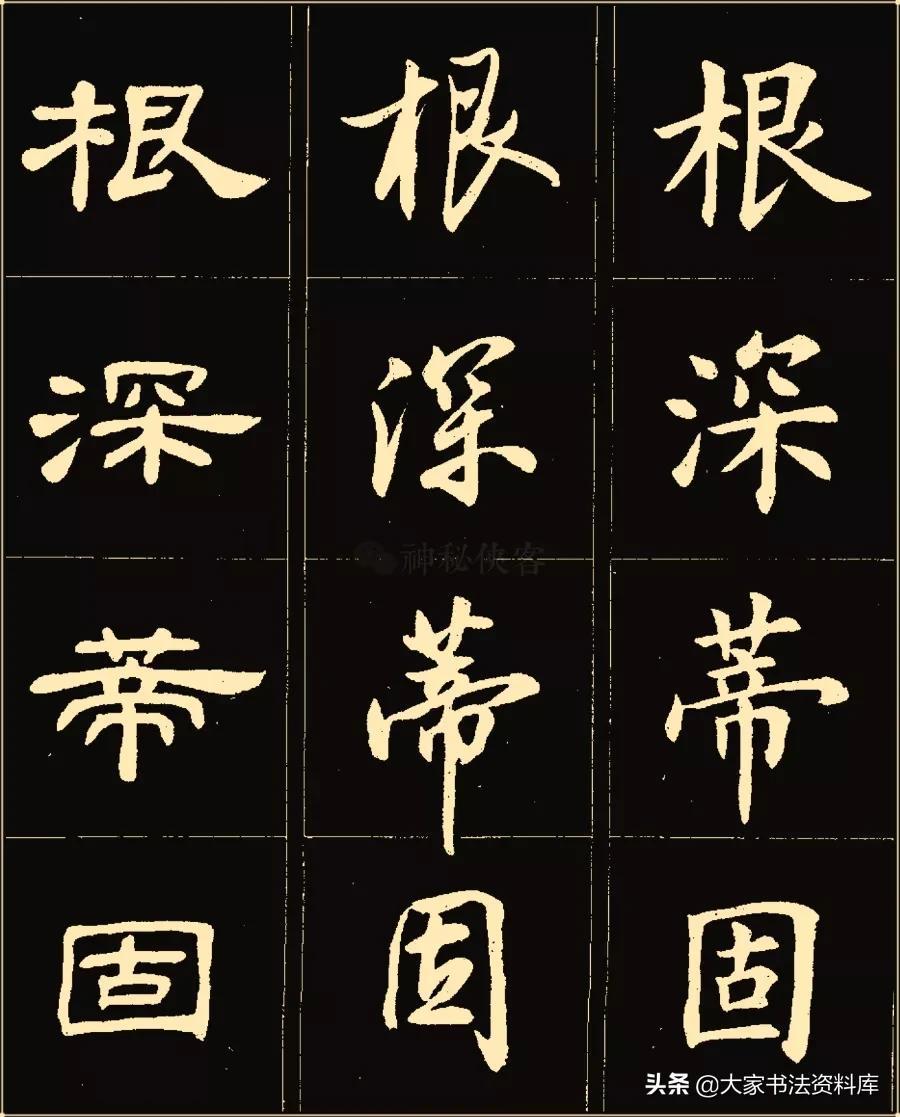 根 根 根
深 深 深
蒂 蒂 蒂
固 固 固
神秘侠客
头条 @大家书法资料库